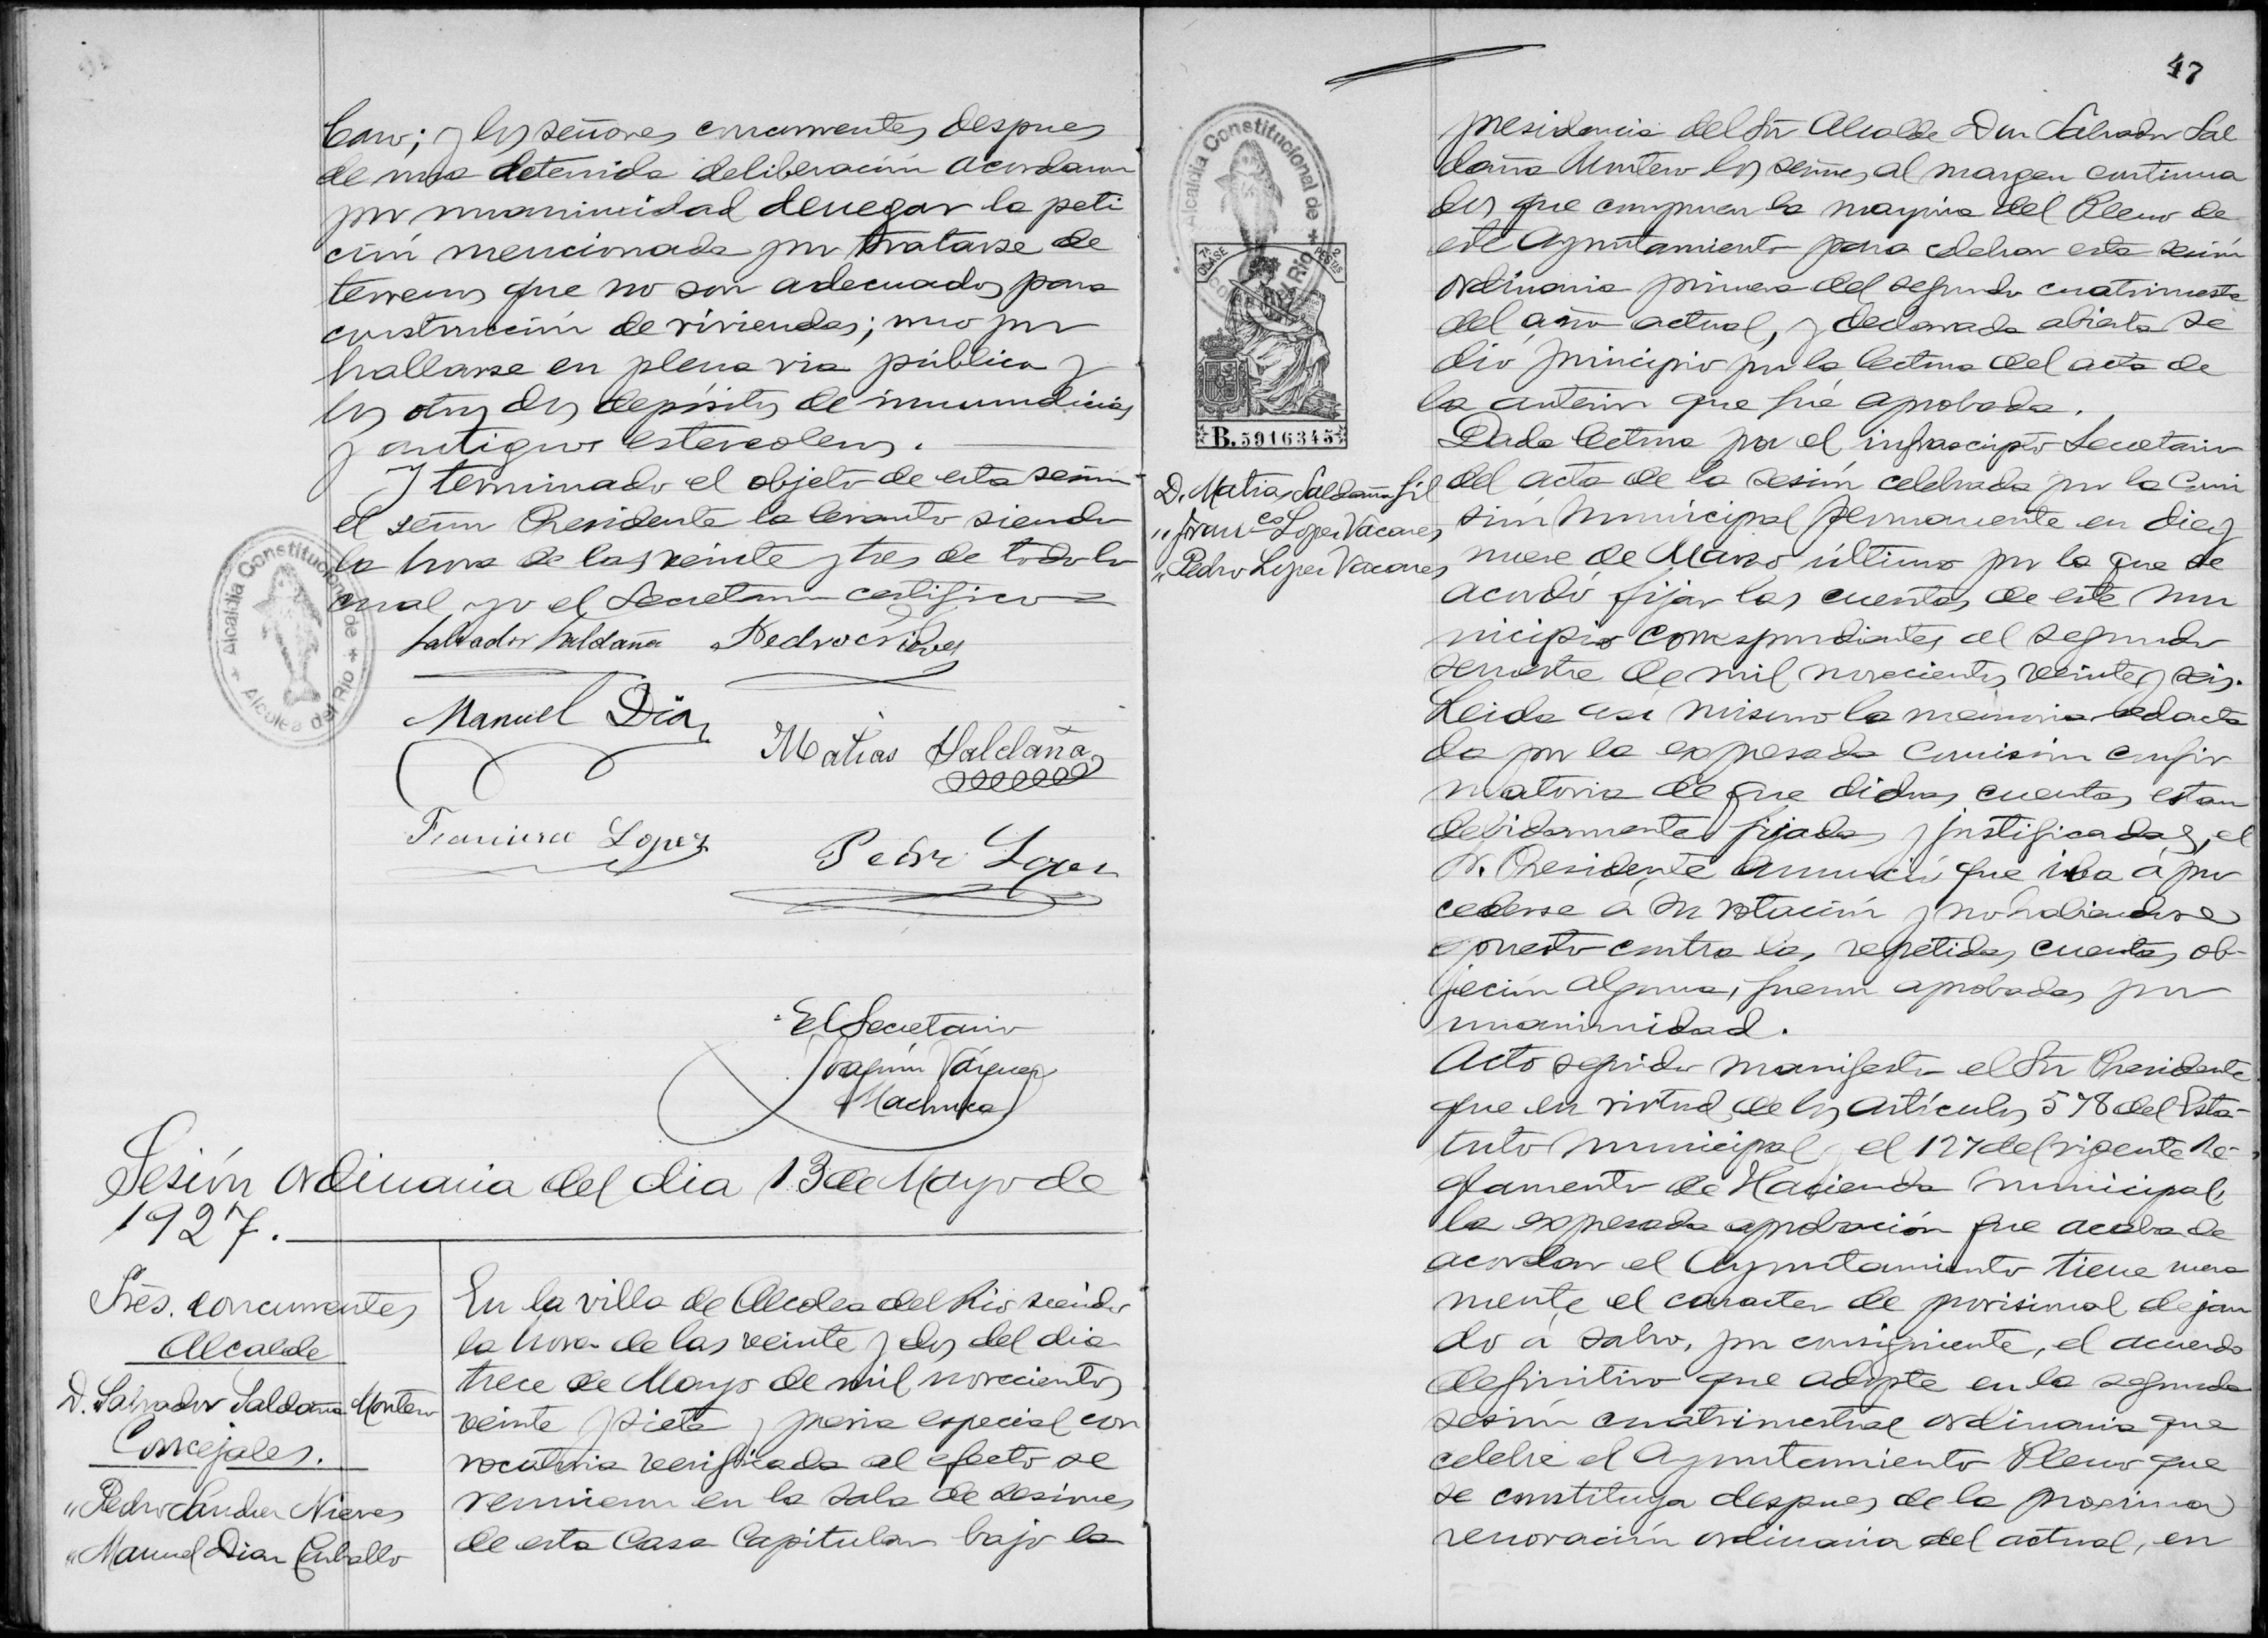 Caro; y los señores concurrentes despues
de una detenida deliberación acordaron
por unanimidad denegar la peti
ción mencionada por tratarse de
terrenos que no son adecuados para
construcción de viviendas; uno por
hallarse en plena via pública y
los otros dos depósitos de inmundicias
y antiguos estercoleros.
Y terminado el objeto de esta sesión
el señor Presidente la levanto siendo
la hora de las veinte y tres de todo lo
cual yo el Secretario certifico =
Salvador Saldaña Pedro Nieves
Manuel Diaz
Matias Saldaña
Francisco Lopez
Pedro Lopez
El Secretario
Joaquín Vázquez
Machuca
Alcaldia Constitucional de
Alcolea del Rio
Sesión ordinaria del dia 13 de Mayo de
1927.
Sres. concurrentes
Alcalde
D. Salvador Saldaña Montero
Concejales.
" Pedro Nieves
" Manuel Diaz Carballo
En la villa de Alcolea del Rio siendo
la hora de las veinte y dos del dia
trece de Mayo de mil novecientos
veinte y siete y previa especial con
vocatoria verificada al efecto se
reunieron en la Sala de sesiones
de esta Casa Capitular bajo la
47
Alcaldia Constitucional de
Alcolea del Rio
7ª CLASE 2 PESETAS
B.5916345
D. Matias Saldaña Gil
" Franco Lopez Vacares
" Pedro Lopez Vacares
presidencia del Sr Alcalde Don Salvador Sal
daña Montero los señores al margen continua
dos que componen la mayoria del Pleno de
este Ayuntamiento para celebrar esta sesión
ordinaria primera del segundo cuatrimestre
del año actual, y declarada abierta se
dió principio por la lectura del acta de
la anterior que fué aprobada.
Dada lectura por el infrascripto Secretario
del acta de la sesión celebrada por la Comi
sión Municipal permanente en diez y
nueve de Marzo último por la que se
acordó fijar las cuentas de este mu
nicipio correspondientes al segundo
semestre de mil novecientos veinte y seis.
Leida asi mismo la memoria redacta
da por la expresada Comisión confir
matoria de que dichas cuentas estan
debidamente fijadas y justificadas, el
Sr. Presidente anunció que iba á pro
cederse á su votación y no habiendose
opuesto contra las repetidas cuentas ob-
jeción alguna, fueron aprobadas por
unanimidad.
Acto seguido manifesto el Sr Presidente
que en virtud de los artículos 578 del Esta-
tuto Municipal y el 127 del vigente Re-
glamento de Hacienda Municipal,
la expresada aprobación que acaba de
acordar el Ayuntamiento tiene mera
mente el caracter de provisional dejan
do á salvo, por consiguiente, el acuerdo
definitivo que adopte en la segunda
sesión cuatrimestral ordinaria que
celebre el Ayuntamiento Pleno que
se constituya despues de la proxima
renovación ordinaria del actual, en